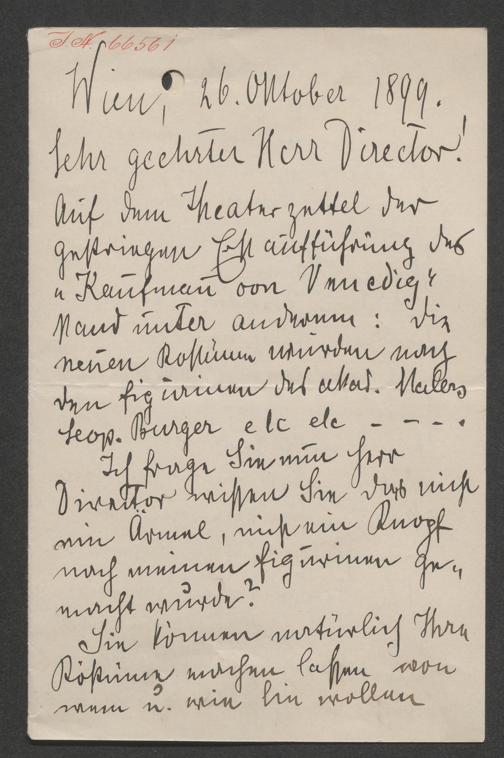 I.N. 66561
Wien, 26. Oktober 1899.
Sehr geehrter Herr Director!
Auf dem Theaterzettel der
gestriegen Erstaufführung des
"Kaufmañ von Venedig"
stand unter anderem: die
neuen Kostüme wurden nach
den figurinen des akad. Malers
Leop. Burger etc etc - - - .
Ich frage Sie nun Herr
Director wissen Sie das nicht
ein Ärmel, nicht ein Knopf
nach meinen figurinen ge-
macht wurde?
Sie können natürlich Ihre
Kostüme machen lassen von
wem u. wie Sie wollen